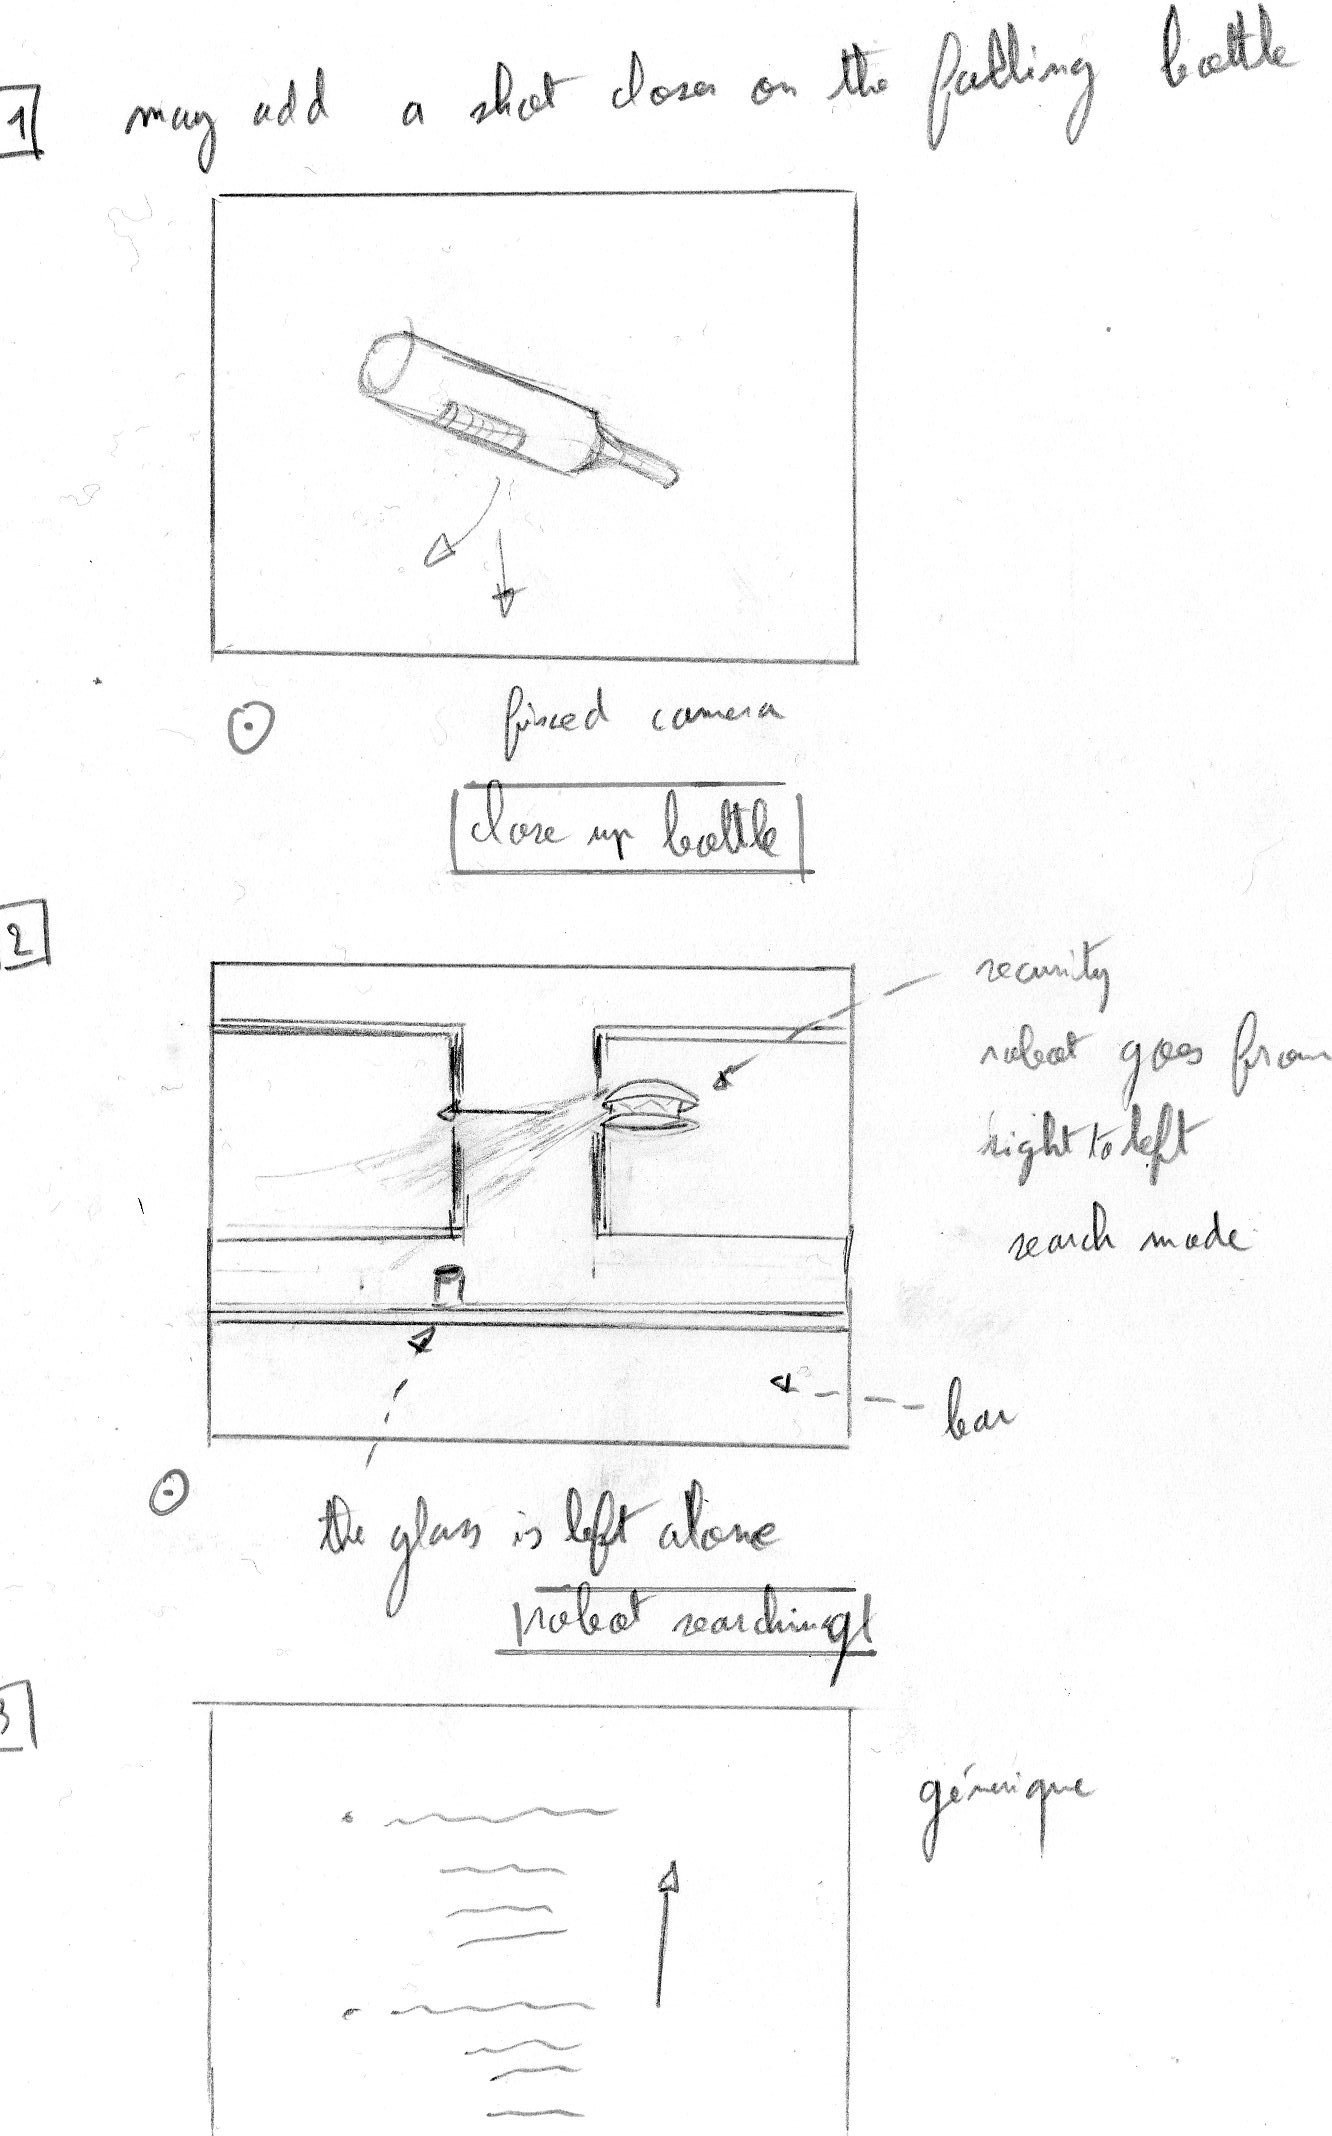 1
may add a shot closer on the falling bottle
fixed camera
close up bottle
2
security
robot goes from
right to left
search mode
bar
the glass is left alone
robot searching
3
générique